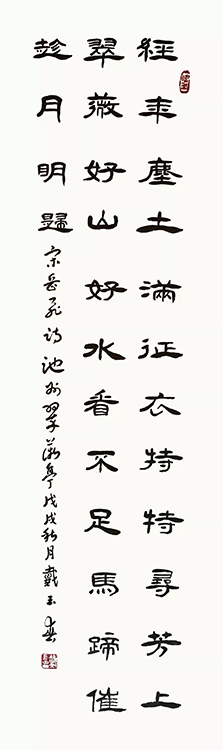 經年塵土滿征衣特特尋芳上
翠薇好山好水看不足馬蹄催
趁月明歸宋岳飛詩池州翠薇亭戊戌秋月戴玉